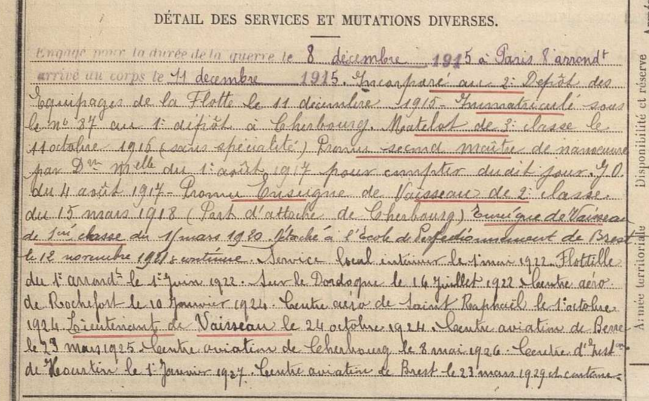 DÉTAIL DES SERVICES ET MUTATIONS DIVERSES.
Engagé pour la durée de la guerre le 8 décembre 1915 à Paris 8e arrondt
arrivé au corps le 11 décembre 1915. Incorporé au 2e Dépôt des
Equipages de la Flotte le 11 décembre 1915 - Immatriculé sous
le no 87 au 1e dépôt à Cherbourg. Matelot de 3e classe le
11 octobre 1916 (sans spécialité) Promu second maître de manœuvre
par Don Melle du 1e août 1917 pour compter dudit jour. J.O.
du 4 août 1917 - Promu Enseigne de Vaisseau de 2e classe
du 15 mars 1918 (Port d'attache de Cherbourg) Enseigne de Vaisseau
de 1ère classe du 15 mars 1920 détaché à l'Ecole de Perfectionnement de Brest
le 12 novembre Service local intérieur le 1e mai 1922. Flottille
du 1e arrondt le 1e juin 1922. Sur le Dordogne le 16 juillet 1922 Centre aéro
de Rochefort le 10 Janvier 1924. Centre aéro de Saint Raphaël le 1e octobre
1924. Lieutenant de Vaisseau le 24 octobre 1924. Centre aviation de Berre
le 23 mars 1925. Centre aviation de Cherbourg le 8 mai 1926. Centre d'Inston
de Hourtin le 1e Janvier 1927. Centre aviation de Brest le 23 mars 1929 et
Disponibilité et réserve
Armée territoriale